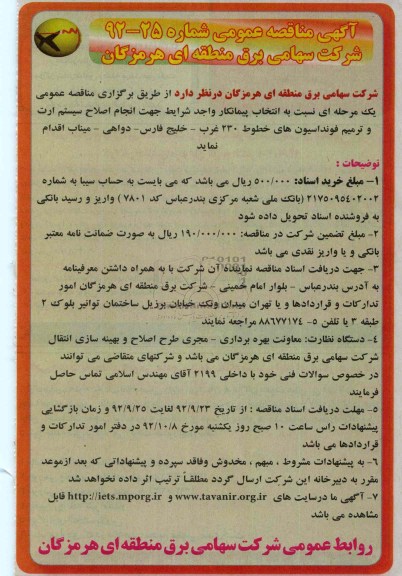 آگهی مناقصه عمومی شماره ۲۵-۹۲
شرکت سهامی برق منطقه ای هرمزگان
شرکت سهامی برق منطقه ای هرمزگان درنظر دارد از طریق برگزاری مناقصه عمومی
یک مرحله ای نسبت به انتخاب پیمانکار واجد شرایط جهت انجام اصلاح سیستم ارت
و ترمیم فونداسیون های خطوط ۲۳۰ غرب - خلیج فارس- دواهی - میناب اقدام
نماید
توضیحات :
۱- مبلغ خرید اسناد: ۵۰۰/۰۰۰ ریال می باشد که می بایست به حساب سیبا به شماره
۲۱۷۵۰۹۵۴۰۲۰۰۲ (بانک ملی شعبه مرکزی بندرعباس کد ۷۸۰۱ ) واریز و رسید بانکی
به فروشنده اسناد تحویل داده شود
۲- مبلغ تضمین شرکت در مناقصه: ۱۹۰/۰۰۰/۰۰۰ ریال به صورت ضمانت نامه معتبر
بانکی و یا واریز نقدی می باشد
۳- جهت دریافت اسناد مناقصه نماینده آن شرکت با به همراه داشتن معرفینامه
به آدرس بندرعباس - بلوار امام خمینی - شرکت برق منطقه ای هرمزگان امور
تدارکات و قراردادها و یا تهران میدان ونک خیابان برزیل ساختمان توانیر بلوک ۲
طبقه ۳ یا تلفن ۵- ۸۸۶۷۷۱۷۴ مراجعه نمایند
۴- دستگاه نظارت: معاونت بهره برداری - مجری طرح اصلاح و بهینه سازی انتقال
شرکت سهامی برق منطقه ای هرمزگان می باشد و شرکتهای متقاضی می توانند
در خصوص سوالات فنی خود با داخلی ۲۱۹۹ آقای مهندس اسلامی تماس حاصل
فرمایند
۵- مهلت دریافت اسناد مناقصه : از تاریخ ۹۲/۹/۲۳ لغایت ۹۲/۹/۲۵ و زمان بازگشایی
پیشنهادات راس ساعت ۱۰ صبح روز یکشنبه مورخ ۹۲/۱۰/۸ در دفتر امور تدارکات و
قراردادها می باشد
۶- به پیشنهادات مشروط ، مبهم ، مخدوش وفاقد سپرده و پیشنهاداتی که بعد ازموعد
مقرر به دبیرخانه این شرکت ارسال گردد مطلقاً ترتیب اثر داده نخواهد شد
۷- آگهی ما درسایت های www.tavanir.org.ir و http://iets.mporg.ir قابل
مشاهده می باشد
روابط عمومی شرکت سهامی برق منطقه ای هرمزگان